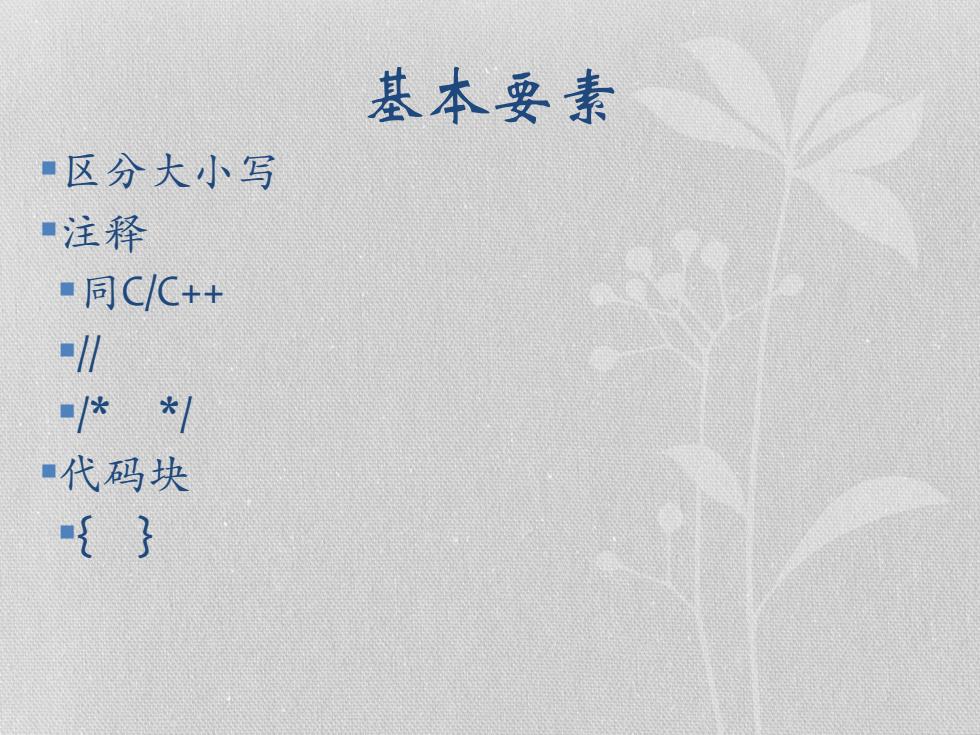 基本要素
区分大小写
注释
同C/C++
//
/* */
代码块
{ }